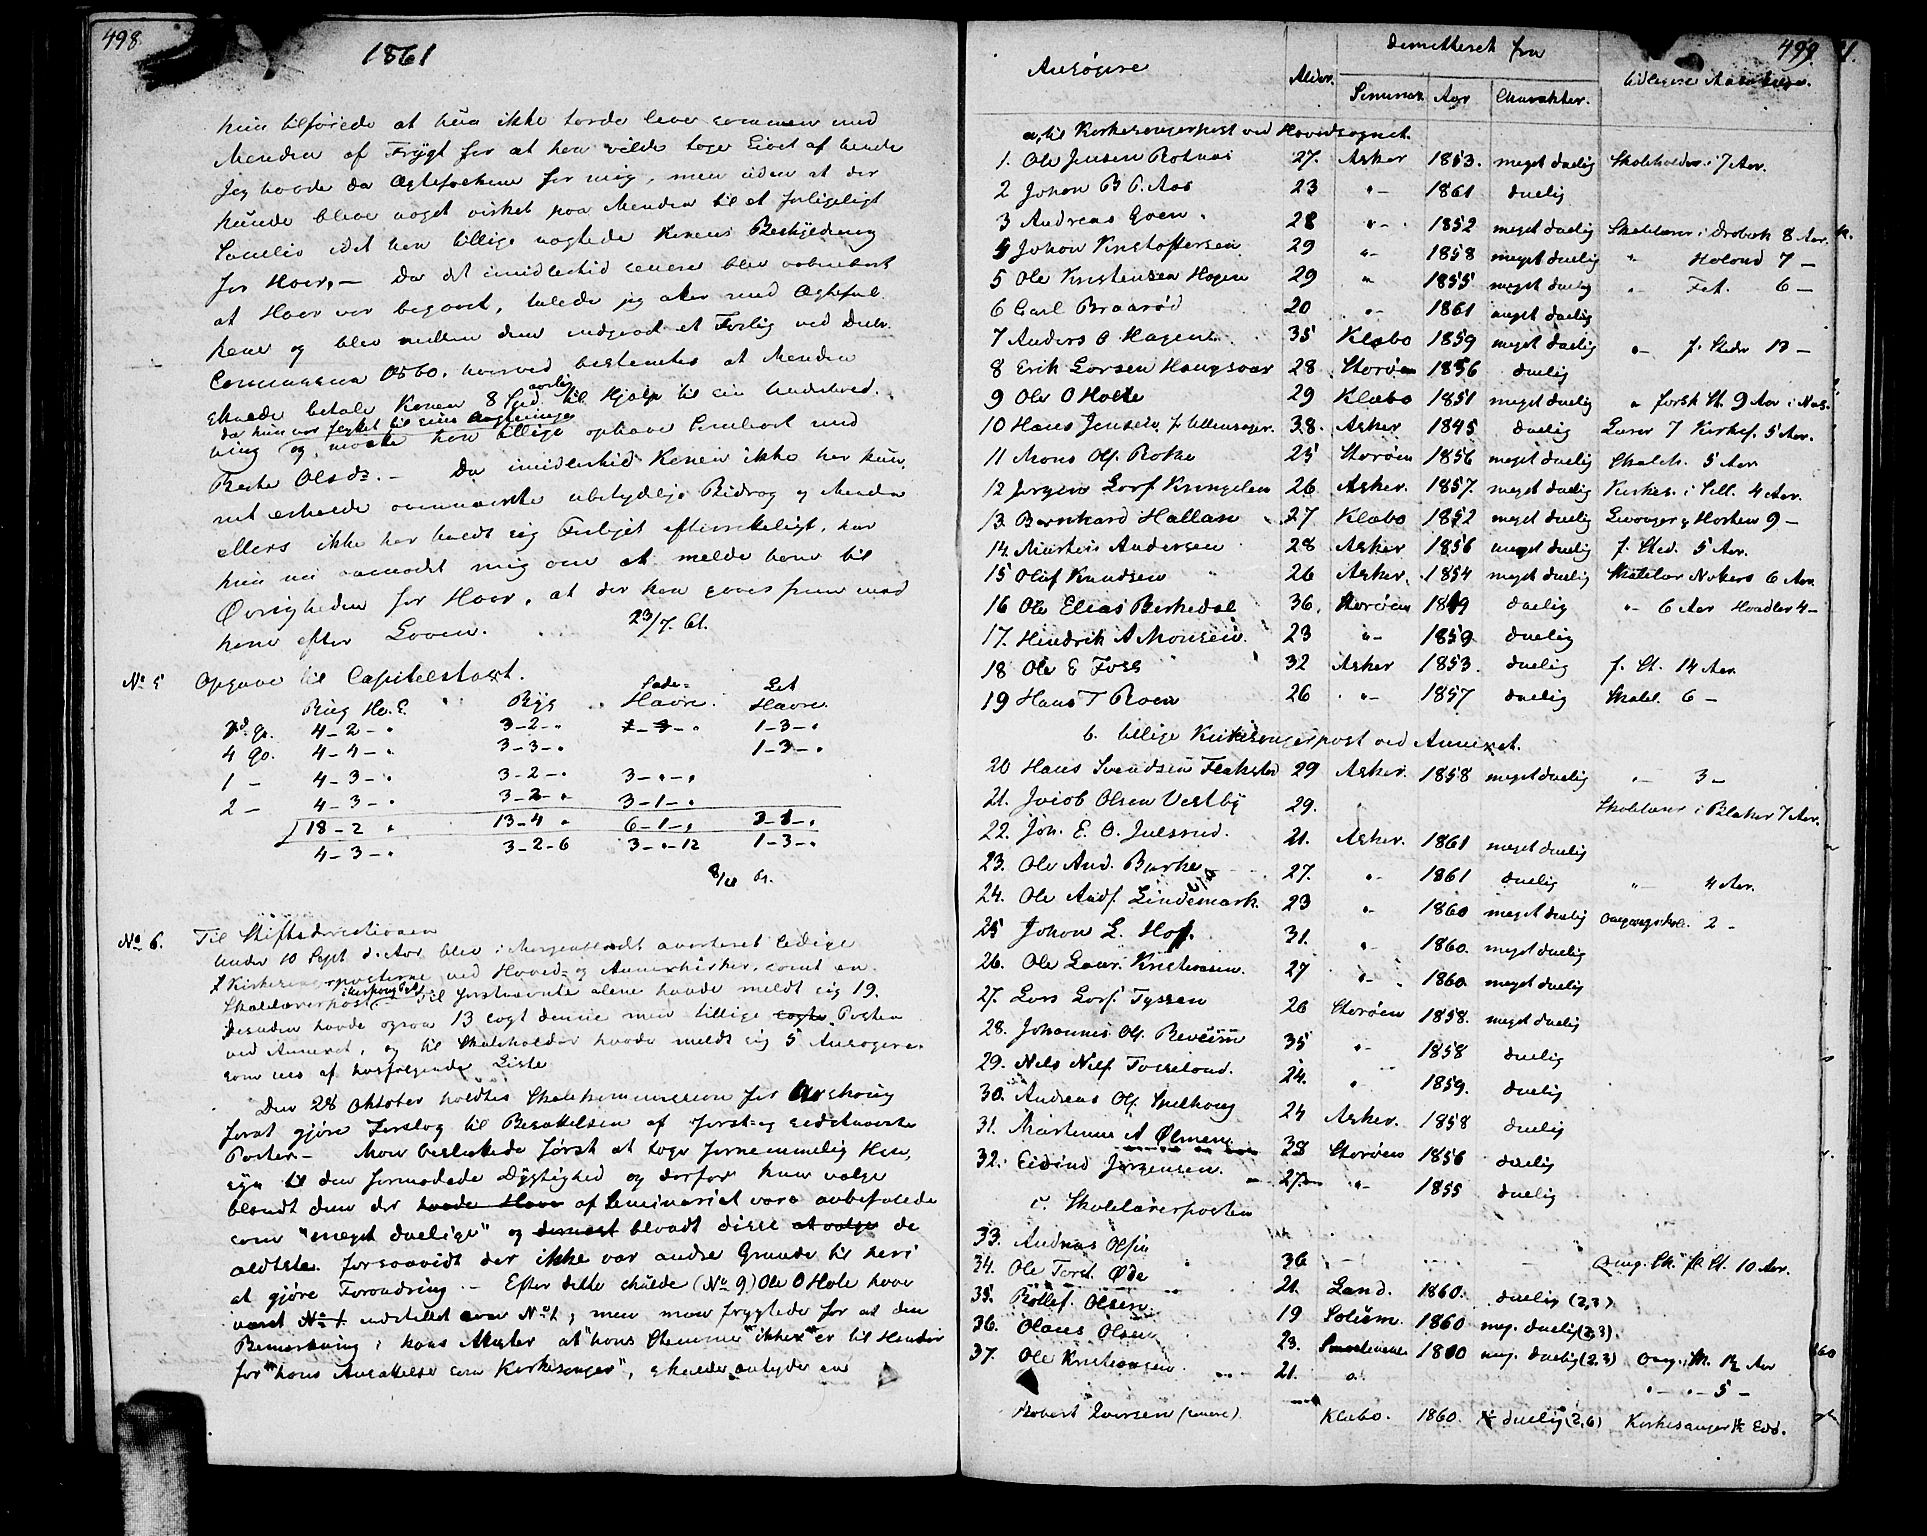 498
1861
hun tilføiede at hun ikke torde leve sammen med
Manden af Frygt for at han vilde tage Livet af hende
Jeg havde da Ægtefolkene for mig, men uden at der
kunde blive noget virket paa Manden til et forligeligt
Samliv idet han tillige nægtede Konens Beskyldning
for Hoer. — Da det imidlertid senere blev aabenbart
at Hoer var begaaet, talede jeg atter med Ægtefol-
kene og blev mellem dem indgaaet et Forlig ved
Commissionen, hvorved bestemtes at Manden
skulde betale Konen 8 Spd. aarlig til Hjælp til sin
da hun var flyttet til sine
og maatte han tillige ophæve Samlivet med
Berte Olsd. — Da imidlertid Konen ikke har kun-
net erholde ubetydelige Bidrag og Manden
ellers ikke har holdt sig Forliget efterretteligt, har
hun nu anmodet mig om at melde ham til
Øvrigheden for Hoer, at der kan gaaes frem med
ham efter Loven. 23/7. 61.
No 5 Opgave til Capitelstaxt.
Rug Byg Havre Havre
3d. Qv. 4-2-" 3-2-" 1-3-"
4 Qv. 4-4-" 3-3-" 1-3-"
1 — 4-3-" 3-2-" 3-"-"
2 — 4-3-" 3-2-" 3-1-"
18-2 " 13-4 " 6-1-"
4-3-" 3-2-6 3-"-12 1-3-"
No 6. Til Stiftsdirectionen
Under 10 Sept d. Aar blev i Morgenbladet averteret ledige
2 Kirkesangerposterne ved Hoved- og Annexkirken, samt en
Skolelærerpost. Til førstnævnte alene havde meldt sig 19.
Desuden havde ogsaa 13 søgt denne men tillige søgte Posten
ved Annexet, og til Skoleholder havde meldt sig 5 Ansøgere.
som sees af hosfølgende Liste
Den 28 Oktober holdtes Skolekommission for Aurskoug
forat gjøre Forslag til Besættelsen af først- og sidstnævnte
Poster. — Man besluttede først at tage fornemmelig Hen-
syn til den formodede Dygtighed og derfor kun vælge
blandt dem der havde Have af Seminariet være anbefalede
som "meget duelige" og dernæst blandt disse at vælge de
ældste. forsaavidt der ikke var andre Grunde til heri
at gjøre Forandring. — Efter dette skulde (No 9) Ole O Hole have
været No 1. indstillet som No 1, men man frygtede for at den
Bemærkning i hans Attester at "hans Stemme" ikke er til Hinder
for "hans Ansættelse som Kirkesanger", skulde antyde en
499.
Ansøgere Alder. Demitteret fra
Seminar. Aar Charakter. tidligere
a, til Kirkesangerpost ved Hovedsognet.
1. Ole Jensen Rotnæs 27. Asker 1853. meget duelig Skoleholder i 7 Aar.
2 Johan B P. Aas 23 "- 1861 duelig
3 Andreas Goen. 28 "- 1852 meget duelig Skolelærer i Drøbak 8 Aar.
4 Johan Kristoffersen 29 "- 1858 meget duelig " Høland 7 —
5 Ole Kristensen Hagen 29 " 1855 meget duelig " Fet. 6 —
6 Carl Braarød 20 "- 1861 meget duelig
7 Anders O Hagene 35 Klæbo 1859 meget duelig " f. Steder 13 —
8 Erik Larsen Haugsvær 28 Storøen 1856 duelig
9 Ole O Holte 29 Klæbo 1851 meget duelig " forsk St. 9 Aar i Næs.
10 Hans Jensen, f Ullensager. 38. Asker 1845 duelig Lærer 7 Kirkes. 5 Aar.
11 Mons Ols. Rotke 25 Storøen 1856 meget duelig Skoleh. 5 Aar
12 Jørgen Larss Kringelen 26 Asker. 1857. meget duelig Kirkes. i Lill. 4 Aar.
13 Bernhard Hallan 27 Klæbo 1852 meget duelig Levanger & Horten 9 —
14 Martin Andersen 28 Asker 1856 meget duelig f. Sted. 5 Aar.
15 Oluf Knudsen 26 Asker. 1854 meget duelig Skolelær Nokers 6 Aar.
16 Ole Elias Berkedal 36. Storøen 1849 duelig "- 6 Aar Handler 4 —
17. Hendrik A Monsen. 23 "- 1859 duelig
18 Ole E Foss 32 Asker 1853. duelig f. St. 14 Aar.
19 Hans T Roen 26 "- 1857 duelig Skolel. 6 —
b. tillige Kirkesangerpost ved Annexet.
20 Hans Svendsen Flakstad 29 Asker. 1858 meget duelig "- 3 —
21. Jacob Olsen Vestby 29. " Skolelærer i Blaker 7 Aar.
22. Joh. E. O. Julsrud. 21. Asker. 1861 meget duelig
23. Ole And. Burke 27. "- 1861 duelig "- 4 Aar.
24. Ole Andf. Lindemark. 23 "- 1860 meget duelig Omgangsskol. 2 —
25 Johan L. Hof. 31. "- 1860. meget duelig
26. Ole Laur. Kristiansen. 27 "- 1860 meget duelig
27. Lars Larss. Tyssen 26 Storøen 1858. meget duelig
28. Johannes Ols. Reveim 35 "- 1858 duelig
29. Nels Nels Tosseland. 24. " 1859. duelig
30. Andreas Ols. Spelhoug 24 Asker. 1858 duelig
31. Martinus A Ølmem 38 Storøen 1856 duelig
32. Eivind Jørgensen. 27 "- 1855 duelig
c. Skolelærerposten
33. Andreas Olsen 36 — — — Omg. Sk. fl. St. 10 Aar.
34. Ole Torst. Øde 21. Land. 1860. duelig (2,3)
35. Rollef. Olsen 19 Soleim. 1860 meg. duelig (2,3).
36. Olaus Olsen 23. 1860 meg. duelig (2,3) Omg. Sk. 1½ Aar
37. Ole Kristiansen 21. "- "- "- 5 —
Robert Iversen (senere) Klæbo. 1860. duelig (2,6) Kirkesanger Eid.